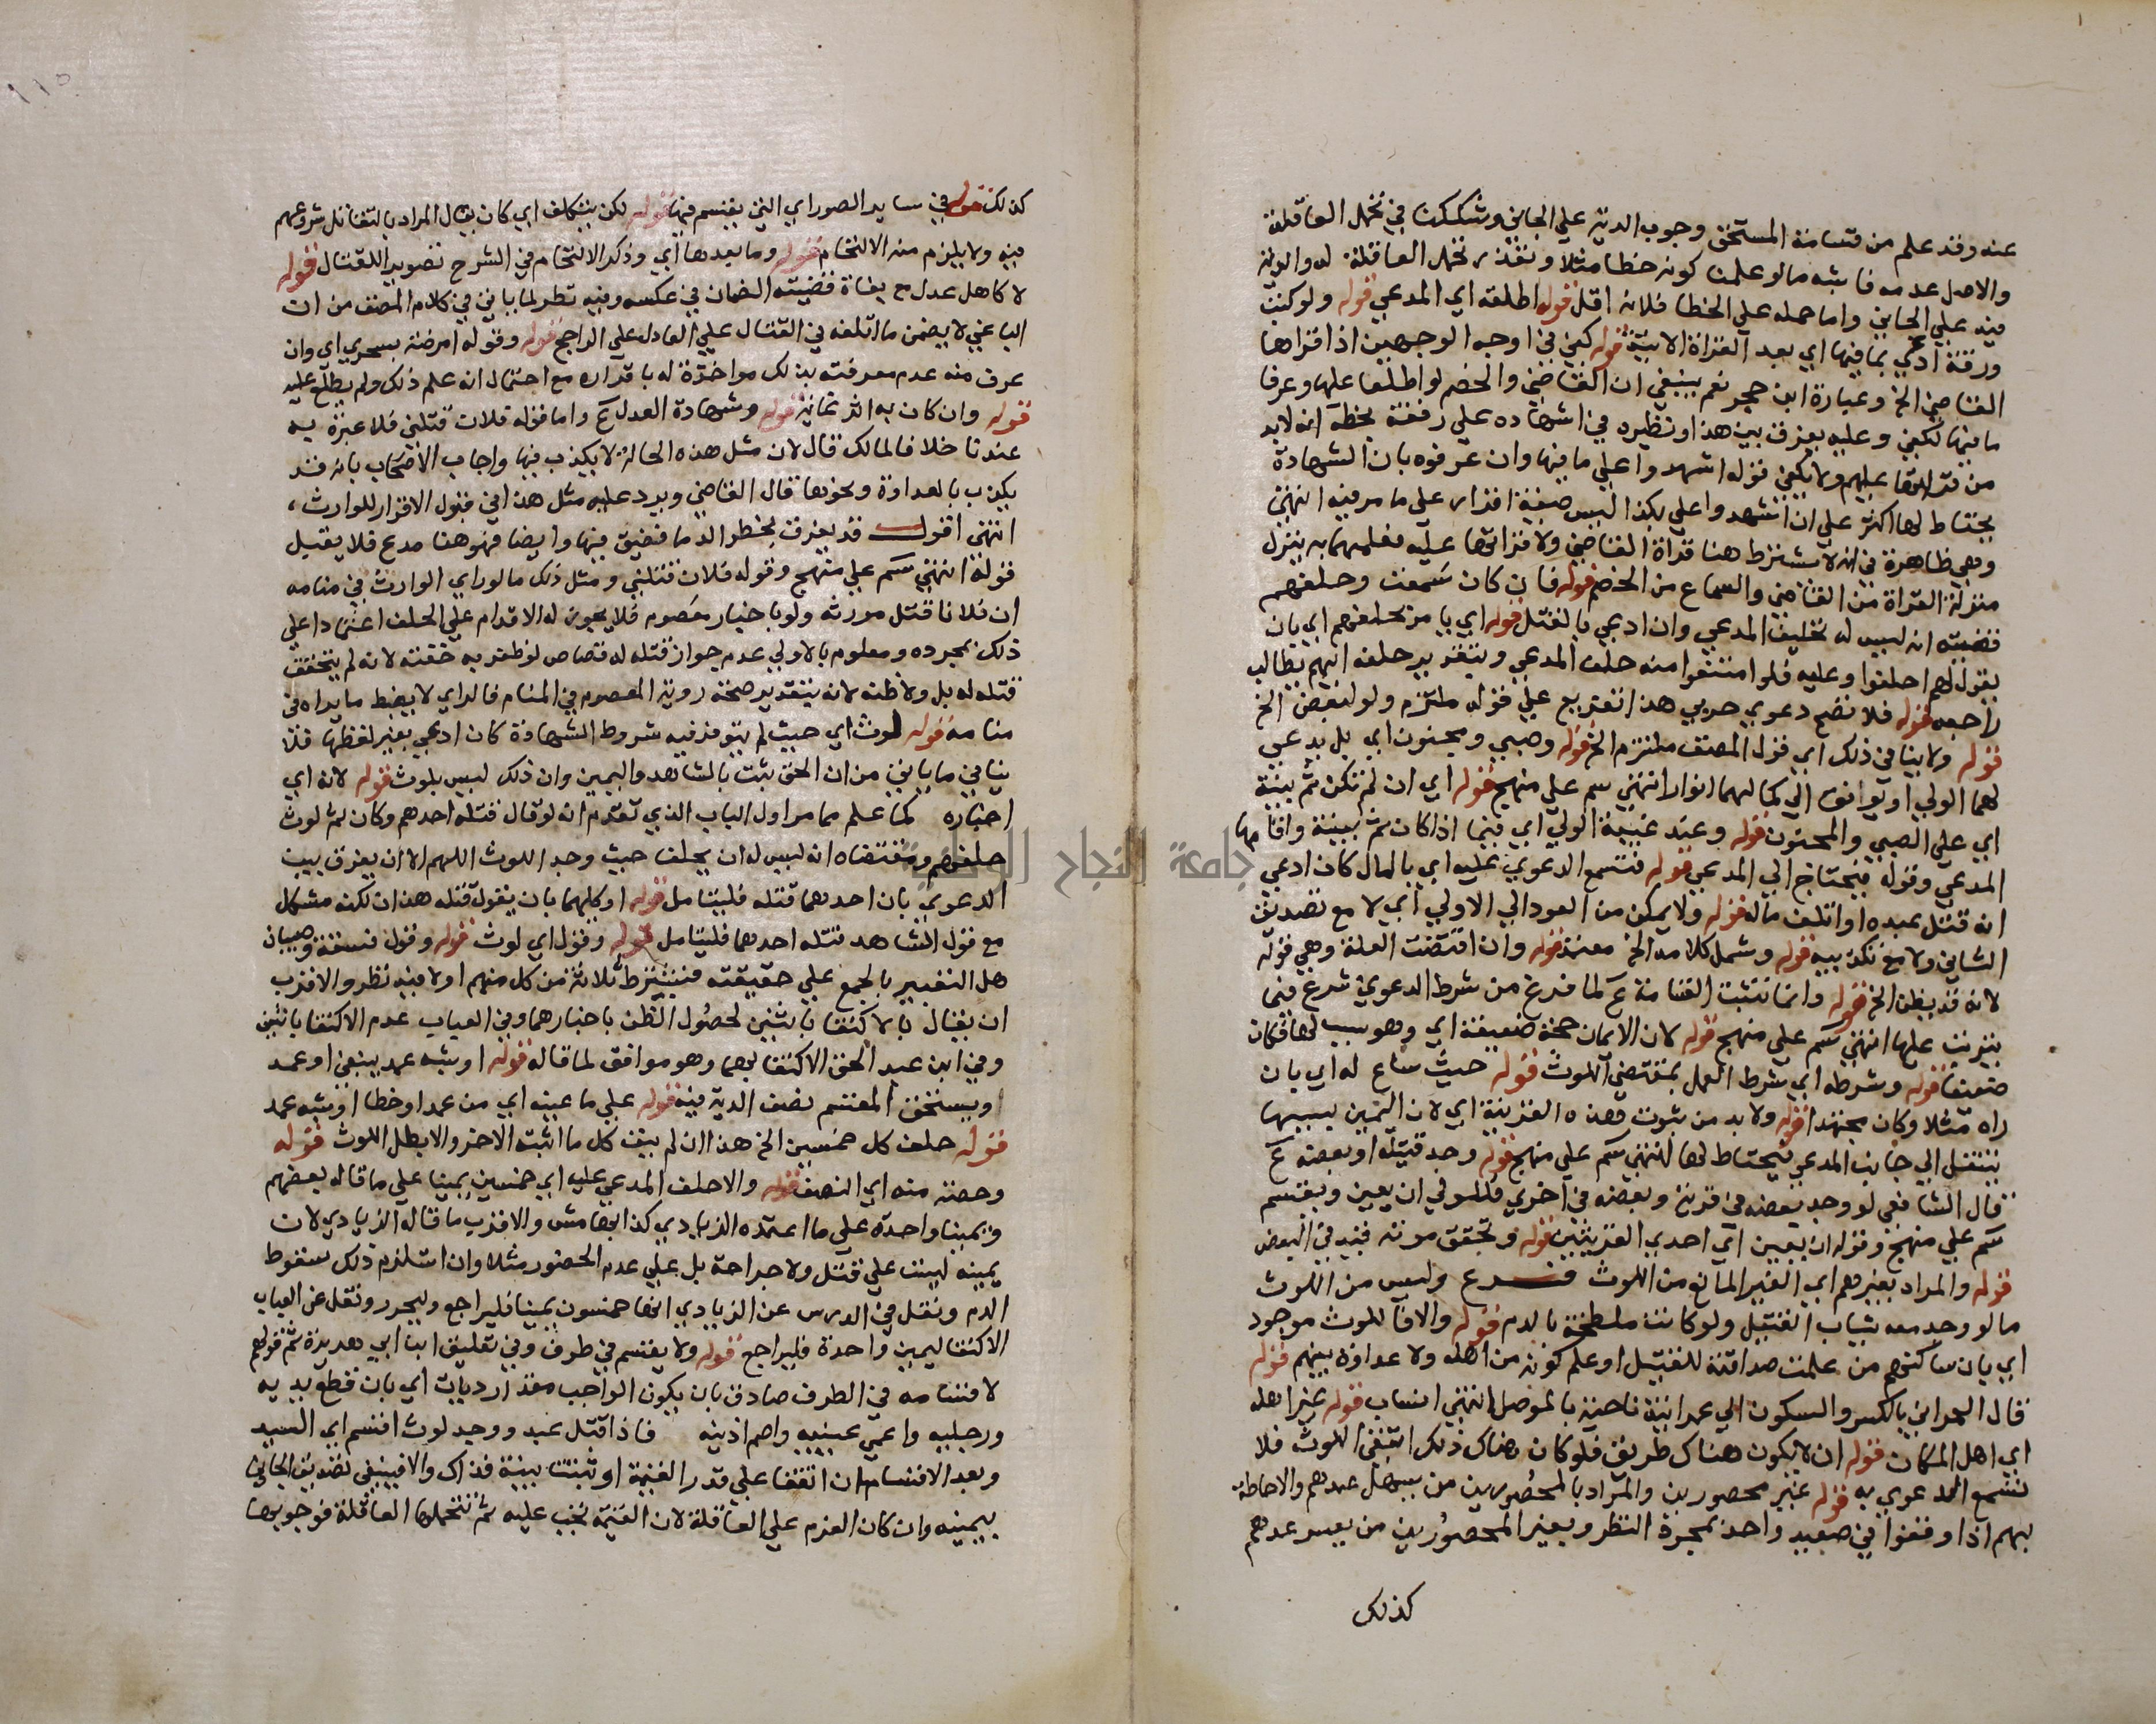 عنه وقد علم من قسامة المستحق وجوب الدية علي الجاني وشككنا في تحمل العاقلة
والاصل عدمه فاشبه ما لو علمنا كونه خطا مثلا وتعذر تحمل العاقلة له والدية
فيه علي الجاني واما حمله علي الخطا فلانه اقل قوله اطلقه اي المدعي قوله ولو كتب
ورقة ادعي بما فيها اي بعد القراة الاتية قوله كفي في اوجه الوجهين اذا قراها
القاضي الخ وعبارة ابن حجر نعم ينبغي ان القاضي والخصم لو اطلعا عليها وعرفا
ما فيها تكفي وعليه يفرق بين هذا ونظيره في اشهاده علي رقعة بخطه انه لابد
من قراتها عليهم ولا يكفي قوله اشهدوا علي ما فيها وان عرفوه بان الشهادة
يحتاط لها اكثر علي ان اشهدوا علي بكذا ليس صيغة اقرار علي ما مر فيه انتهي
وهي ظاهرة في انه لا يشترط هنا قراة القاضي ولا قراتها عليه فعلمهما به ينزل
منزلة القراة من القاضي والسماع من الخصم قوله فان كان سمعت وحلفهم
قضيته انه ليس له تحليف المدعي وان ادعي بالقتل قوله اي يامر بحلفهم اي بان
يقول لهم احلفوا وعليه فلو امتنعوا منه حلف المدعي وبتقدير حلفه ايهم يطالب
راجعه قوله فلا تصح دعوي حربي هذا تفريع علي قوله ملتزم ولو لبعض الخ
قوله ولا ينافي ذلك اي قول المصنف ملتزم الخ قوله وصبي ومجنون اي بل يدعي
لهما الولي او يوافق الي كمالهما انوار انتهي سم علي منهج قوله اي ان لم تكن ثم بينة
اي علي الصبي والمجنون قوله وعند غيبة الولي اي فيما اذا كان ثم بينة واقامها
المدعي وقوله فيحتاج الي المدعي قوله فتسمع الدعوي عليه اي بالمال كان ادعي
انه قتل عبده او اتلف ماله قوله ولا يمكن من العود الي الاولي اي لا مع تصديق
الثاني ولا مع تكذيبه قوله وشمل كلامه الخ معتمد قوله وان اقتضت العلة وهي قوله
لانه قد يظن الخ قوله وانما تثبت القسامة ع لما فرغ من شرط الدعوي شرع فيما
يترتب عليها انتهي سم علي منهج قوله لان الايمان حجة ضعيفة اي وهو سبب لها فكان
ضعيفا قوله وشرطه اي شرط العمل بمقتضي اللوث قوله حيث ساغ له اي بان
راه مثلا وكان مجتهدا قوله ولا بد من ثبوت هذه القرينة اي لان اليمين بسببها
تنتقل الي جانب المدعي فيحتاط لها انتهي سم علي منهج قوله وجد قتيله او بعضه ع
قال الشافعي لو وجد بعضه في قرية وبعضه في اخري فللولي ان يعين ويقسم
سم علي منهج وقوله ان يعين اي احدي القريتين قوله وتحقق موته قيد في البعض
قوله والمراد بغيرهم اي الغير المانع من اللوث فرع وليس من اللوث
ما لو وجد معه ثياب القتيل ولو كانت ملطخة بالدم قوله والا فاللوث موجود
اي بان ساكنهم من علمت صداقته للقتيل او علم كونه من اهله ولا عداوة بينهم قوله
قال العمراني بالكسر والسكون الي عمرانية ناحية بالموصل انتهي انساب قوله غير اهله
اي اهل المكان قوله ان لا يكون هناك طريق فلو كان هناك ذلك انتفي اللوث فلا
تسمع الدعوي به قوله غير محصورين والمراد بالمحصورين من يسهل عدهم والاحاطة
بهم اذا وقفوا في صعيد واحد بمجرد النظر وبغير المحصورين من يعسر عدهم
كذلك
كذلك قوله في ساير الصور اي التي يقسم فيها قوله لكن بتكلف اي كان يقال المراد بالتقاتل شروعهم
فيه ولا يلزم منه الالتحام قوله وما بعدها اي وذكر الالتحام في الشرح تصوير للقتال قوله
لا كاهل عدل مع بغاة قضيته الضمان في عكسه وفيه نظر لما ياتي في كلام المصنف من ان
الباغي لا يضمن ما اتلفه في القتال علي العادل علي الراجح قوله وقوله امرضته بسحري اي وان
عرف منه عدم معرفته بذلك مواخذة له باقراره مع احتمال انه علم ذلك ولم يطلع عليه
قوله وان كان به اثر ثمانية قوله وشهادة العدل ع واما قوله فلان قتلني فلا عبرة به
عندنا خلافا لمالك قال لان مثل هذه الحالة لا يكذب فيها واجاب الاصحاب بانه قد
يكذب بالعداوة ونحوها قال القاضي ويرد عليه مثل هذا في قبول الاقرار للوارث
انتهي اقول قد يفرق بخطر الدما فضيق فيها وايضا فهو هنا مدع فلا يقبل
قوله انتهي سم علي منهج وقوله فلان قتلني ومثل ذلك ما لو راي الوارث في منامه
ان فلانا قتل مورثه ولو باخبار معصوم فلا يجوز له الاقدام علي الحلف اعتمادا علي
ذلك بمجرده ومعلوم بالاولي عدم جواز قتله له قصاصا لو ظفر به خفية لانه لم يتحقق
قتله له بل ولا ظنه لانه بتقدير صحة روية المعصوم في المنام فالراي لا يضبط ما يراه في
منامه قوله لوث اي حيث لم يتوفر فيه شروط الشهادة كان ادعي بغير لفظها فلا
ينافي ما ياتي من ان الحق يثبت بالشاهد واليمين وان ذلك ليس بلوث قوله لانه اي
اخباره كما علم مما مر اول الباب الذي تقدم انه لو قال قتله احدهم وكان ثم لوث
حلفهم ومقتضاه انه ليس له ان يحلف حيث وجد اللوث اللهم الا ان يفرق بين
الدعوي بان احدهما قتله فليتامل قوله او كليهما بان يقول قتله هذان لكنه مشكل
مع قول الشاهد قتله احدهما فليتامل قوله وقول اي لوث قوله وقول فسقة وصبيان
هل التعبير بالجمع علي حقيقته فيشترط ثلاثة من كل منهم او لا فيه نظر والاقرب
ان يقال بالاكتفا باثنين لحصول الظن باخبارهما وفي العباب عدم الاكتفا باثنين
وفي ابن عبد الحق الاكتفا بهما وهو موافق لما قاله قوله او شبه عمد ينبغي او عمد
ويستحق المقسم نصف الدية فيه قوله علي ما عينه اي من عمد او خطا او شبه عمد
قوله حلف كل خمسين الخ هذا ان لم ينف كل ما اثبته الاخر والا بطل اللوث قوله
وحصته منه اي النصف قوله والا حلف المدعي عليه اي خمسين يمينا علي ما قاله بعضهم
ويمينا واحدة علي ما اعتمده الزيادي كذا بهامش والاقرب ما قاله الزيادي لان
يمينه ليست علي قتل ولا جراحة بل علي عدم الحضور مثلا وان استلزم ذلك سقوط
الدم ونقل في الدرس عن الزيادي انها خمسون يمينا فليراجع وليحرر ونقل عن العباب
الاكتفا بيمين واحدة فليراجع قوله ولا يقسم في طرف وفي تعليق ابن ابي هريرة ثم قولهم
لا قسامة في الطرف صادق بان يكون الواجب مقدار ديات اي بان قطع يديه
ورجليه واعمي عينيه واصم اذنيه فاذا قتل عبد ووجد لوث اقسم اي السيد
وبعد الاقسام ان اتفقا علي قدر القيمة او ثبتت ببينة فذاك والا فينبغي تصديق الجاني
بيمينه وان كان الغرم علي العاقلة لان القيمة تجب عليه ثم تتحملها العاقلة فوجوبها
جامعة النجاح الوطنية